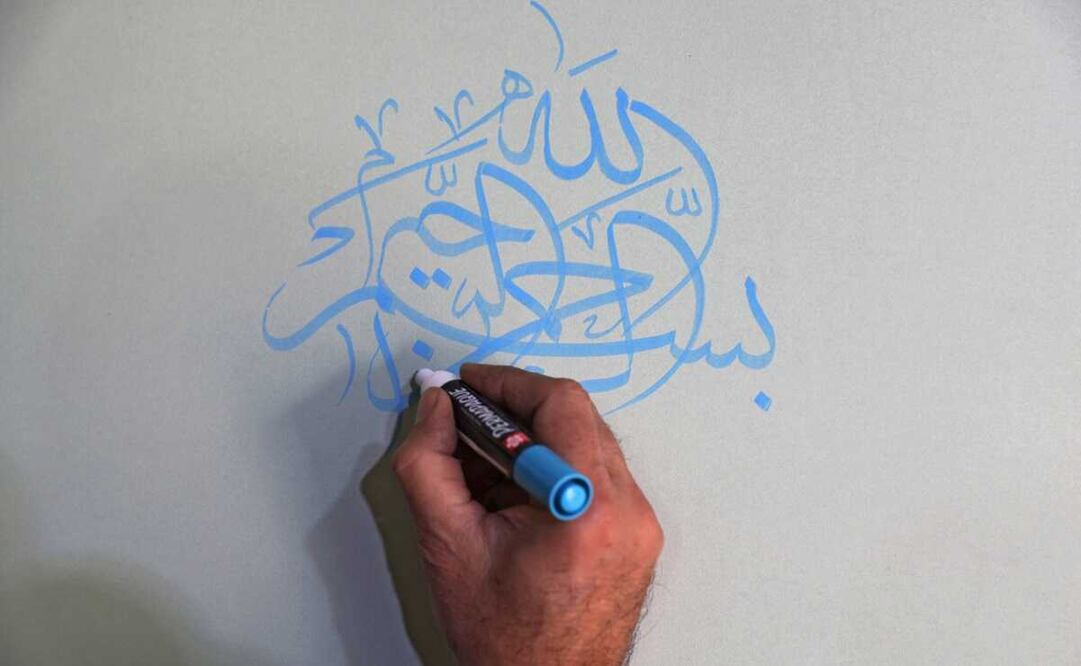 بسم الله الرحمن الرحيم
PERMAPAQUE